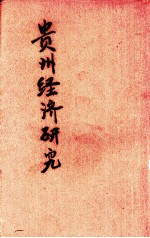 贵州经济研究